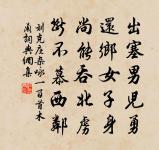 出塞男兒勇
還鄉女子身
尚能吞北虜
斷不慕西鄰
劉克庄雜咏一百首木
蘭詞典網集